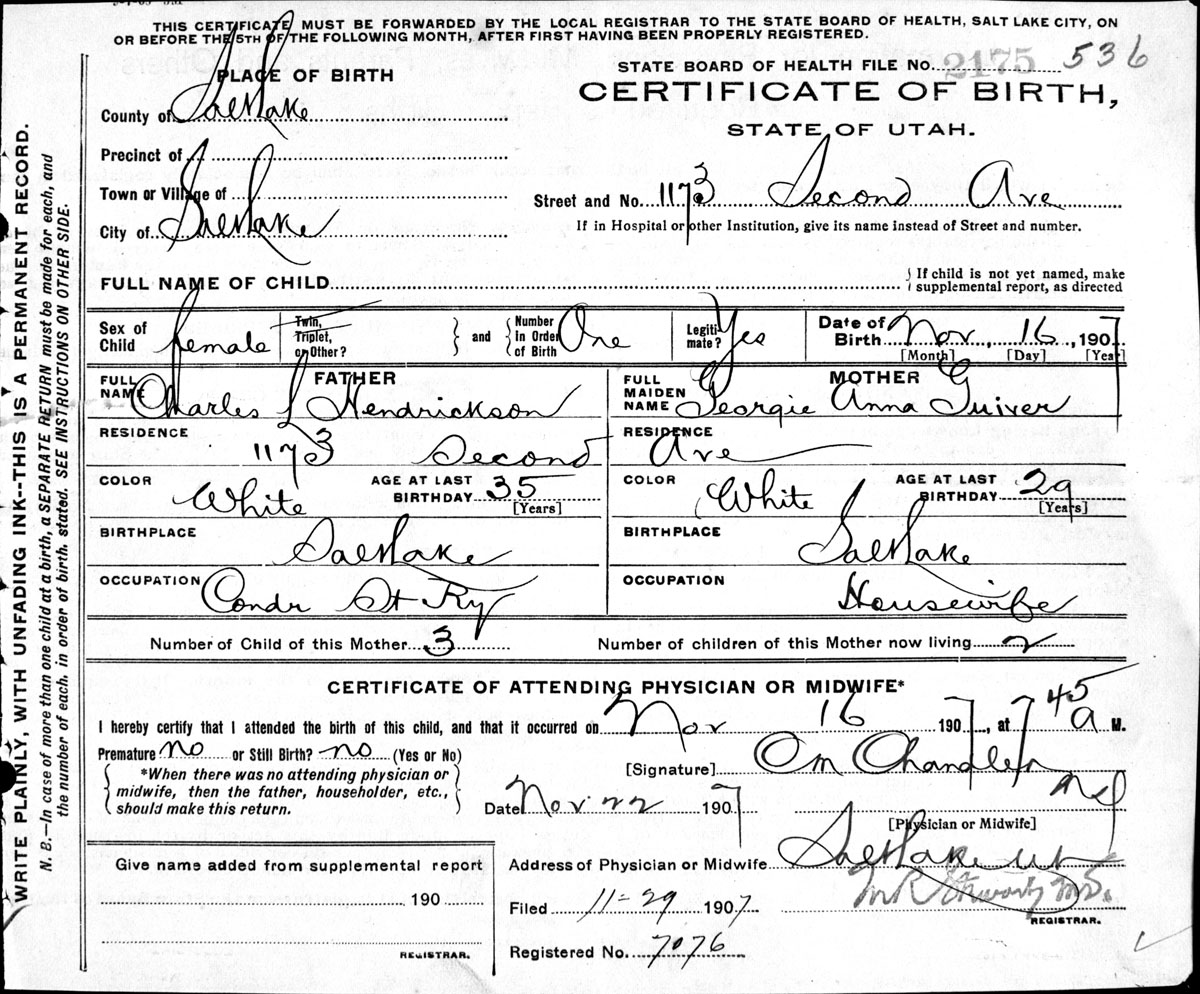 THIS CERTIFICATE MUST BE FORWARDED BY THE LOCAL REGISTRAR TO THE STATE BOARD OF HEALTH, SALT LAKE CITY, ON
OR BEFORE THE 5TH OF THE FOLLOWING MONTH, AFTER FIRST HAVING BEEN PROPERLY REGISTERED.
PLACE OF BIRTH
STATE BOARD OF HEALTH FILE NO. 2175 536
CERTIFICATE OF BIRTH,
STATE OF UTAH.
County of Salt Lake
Precinct of
Town or Village of
City of Salt Lake
Street and No. 1173 Second Ave
If in Hospital or other Institution, give its name instead of Street and number.
FULL NAME OF CHILD
{ If child is not yet named, make
supplemental report, as directed
Sex of Child female
Twin, Triplet, or Other?
and
Number in Order of Birth One
Legitimate? Yes
Date of Birth Nov, 16, 1907
[Month] [Day] [Year]
FATHER
FULL NAME Charles L Hendrickson
MOTHER
FULL MAIDEN NAME Georgie Anna Guiver
RESIDENCE 1173 Second
RESIDENCE Ave
COLOR White
AGE AT LAST BIRTHDAY 35 [Years]
COLOR White
AGE AT LAST BIRTHDAY 29 [Years]
BIRTHPLACE Salt Lake
BIRTHPLACE Salt Lake
OCCUPATION Condr St Ry
OCCUPATION Housewife
Number of Child of this Mother 3
Number of children of this Mother now living 2
CERTIFICATE OF ATTENDING PHYSICIAN OR MIDWIFE*
I hereby certify that I attended the birth of this child, and that it occurred on Nov 16 1907, at 7 45 a M.
Premature no or Still Birth? no (Yes or No)
*When there was no attending physician or
midwife, then the father, householder, etc.,
should make this return.
[Signature] O M Chandler
Date Nov 22 1907
MD
[Physician or Midwife]
Give name added from supplemental report
190
REGISTRAR.
Address of Physician or Midwife Salt Lake Ut
Filed 11-29 1907
REGISTRAR.
Registered No. 7076
WRITE PLAINLY, WITH UNFADING INK--THIS IS A PERMANENT RECORD.
N. B.—In case of more than one child at a birth, a SEPARATE RETURN must be made for each, and
the number of each, in order of birth, stated. SEE INSTRUCTIONS ON OTHER SIDE.